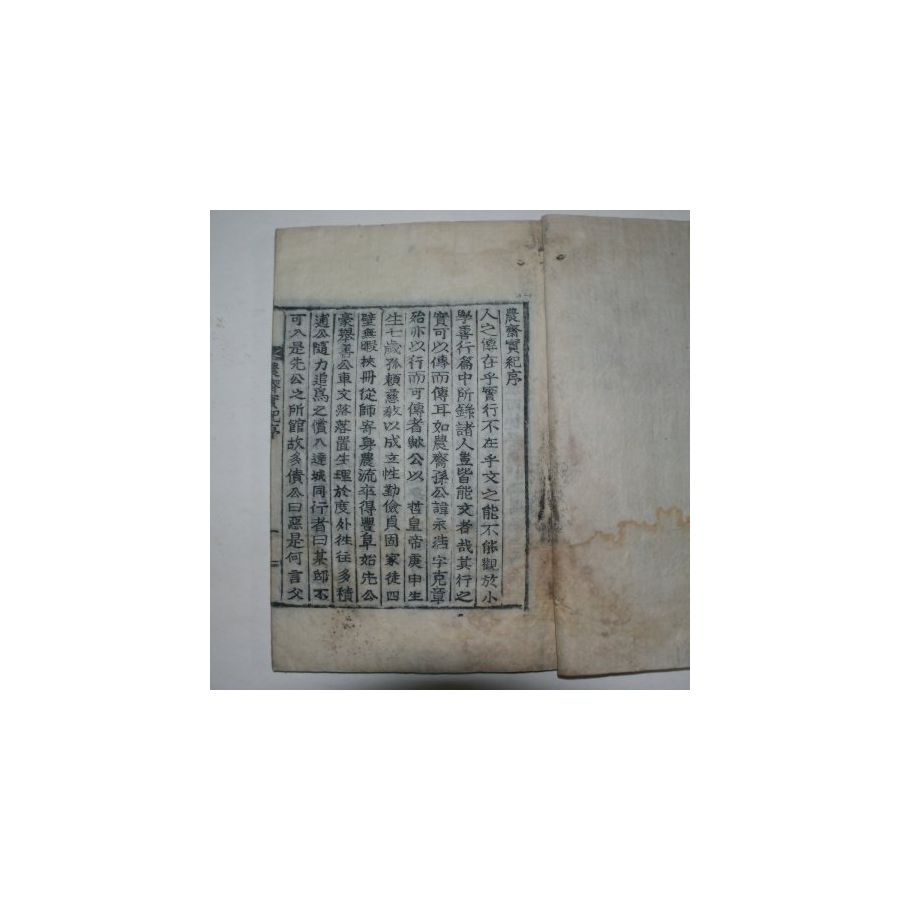 農齋實紀序
人之傳在乎實行不在乎文之能不能觀於小
學善行篇中所錄諸人豈皆能文者哉其行之
實可以傳而傳耳如農齋孫公諱永浩字克章
殆亦以行而可傳者歟公以 哲皇帝庚申生
生七歲孤賴慈敎以成立性勤儉貞固家徒四
壁無暇挾冊從師寄身農流卒得豐阜始先公
豪擧善公車文落落置生理於度外徃徃多積
逋公隨力追爲之償入達城同行者曰某郎不
可入是先公之所館故多債公曰惡是何言父
農齋實紀序